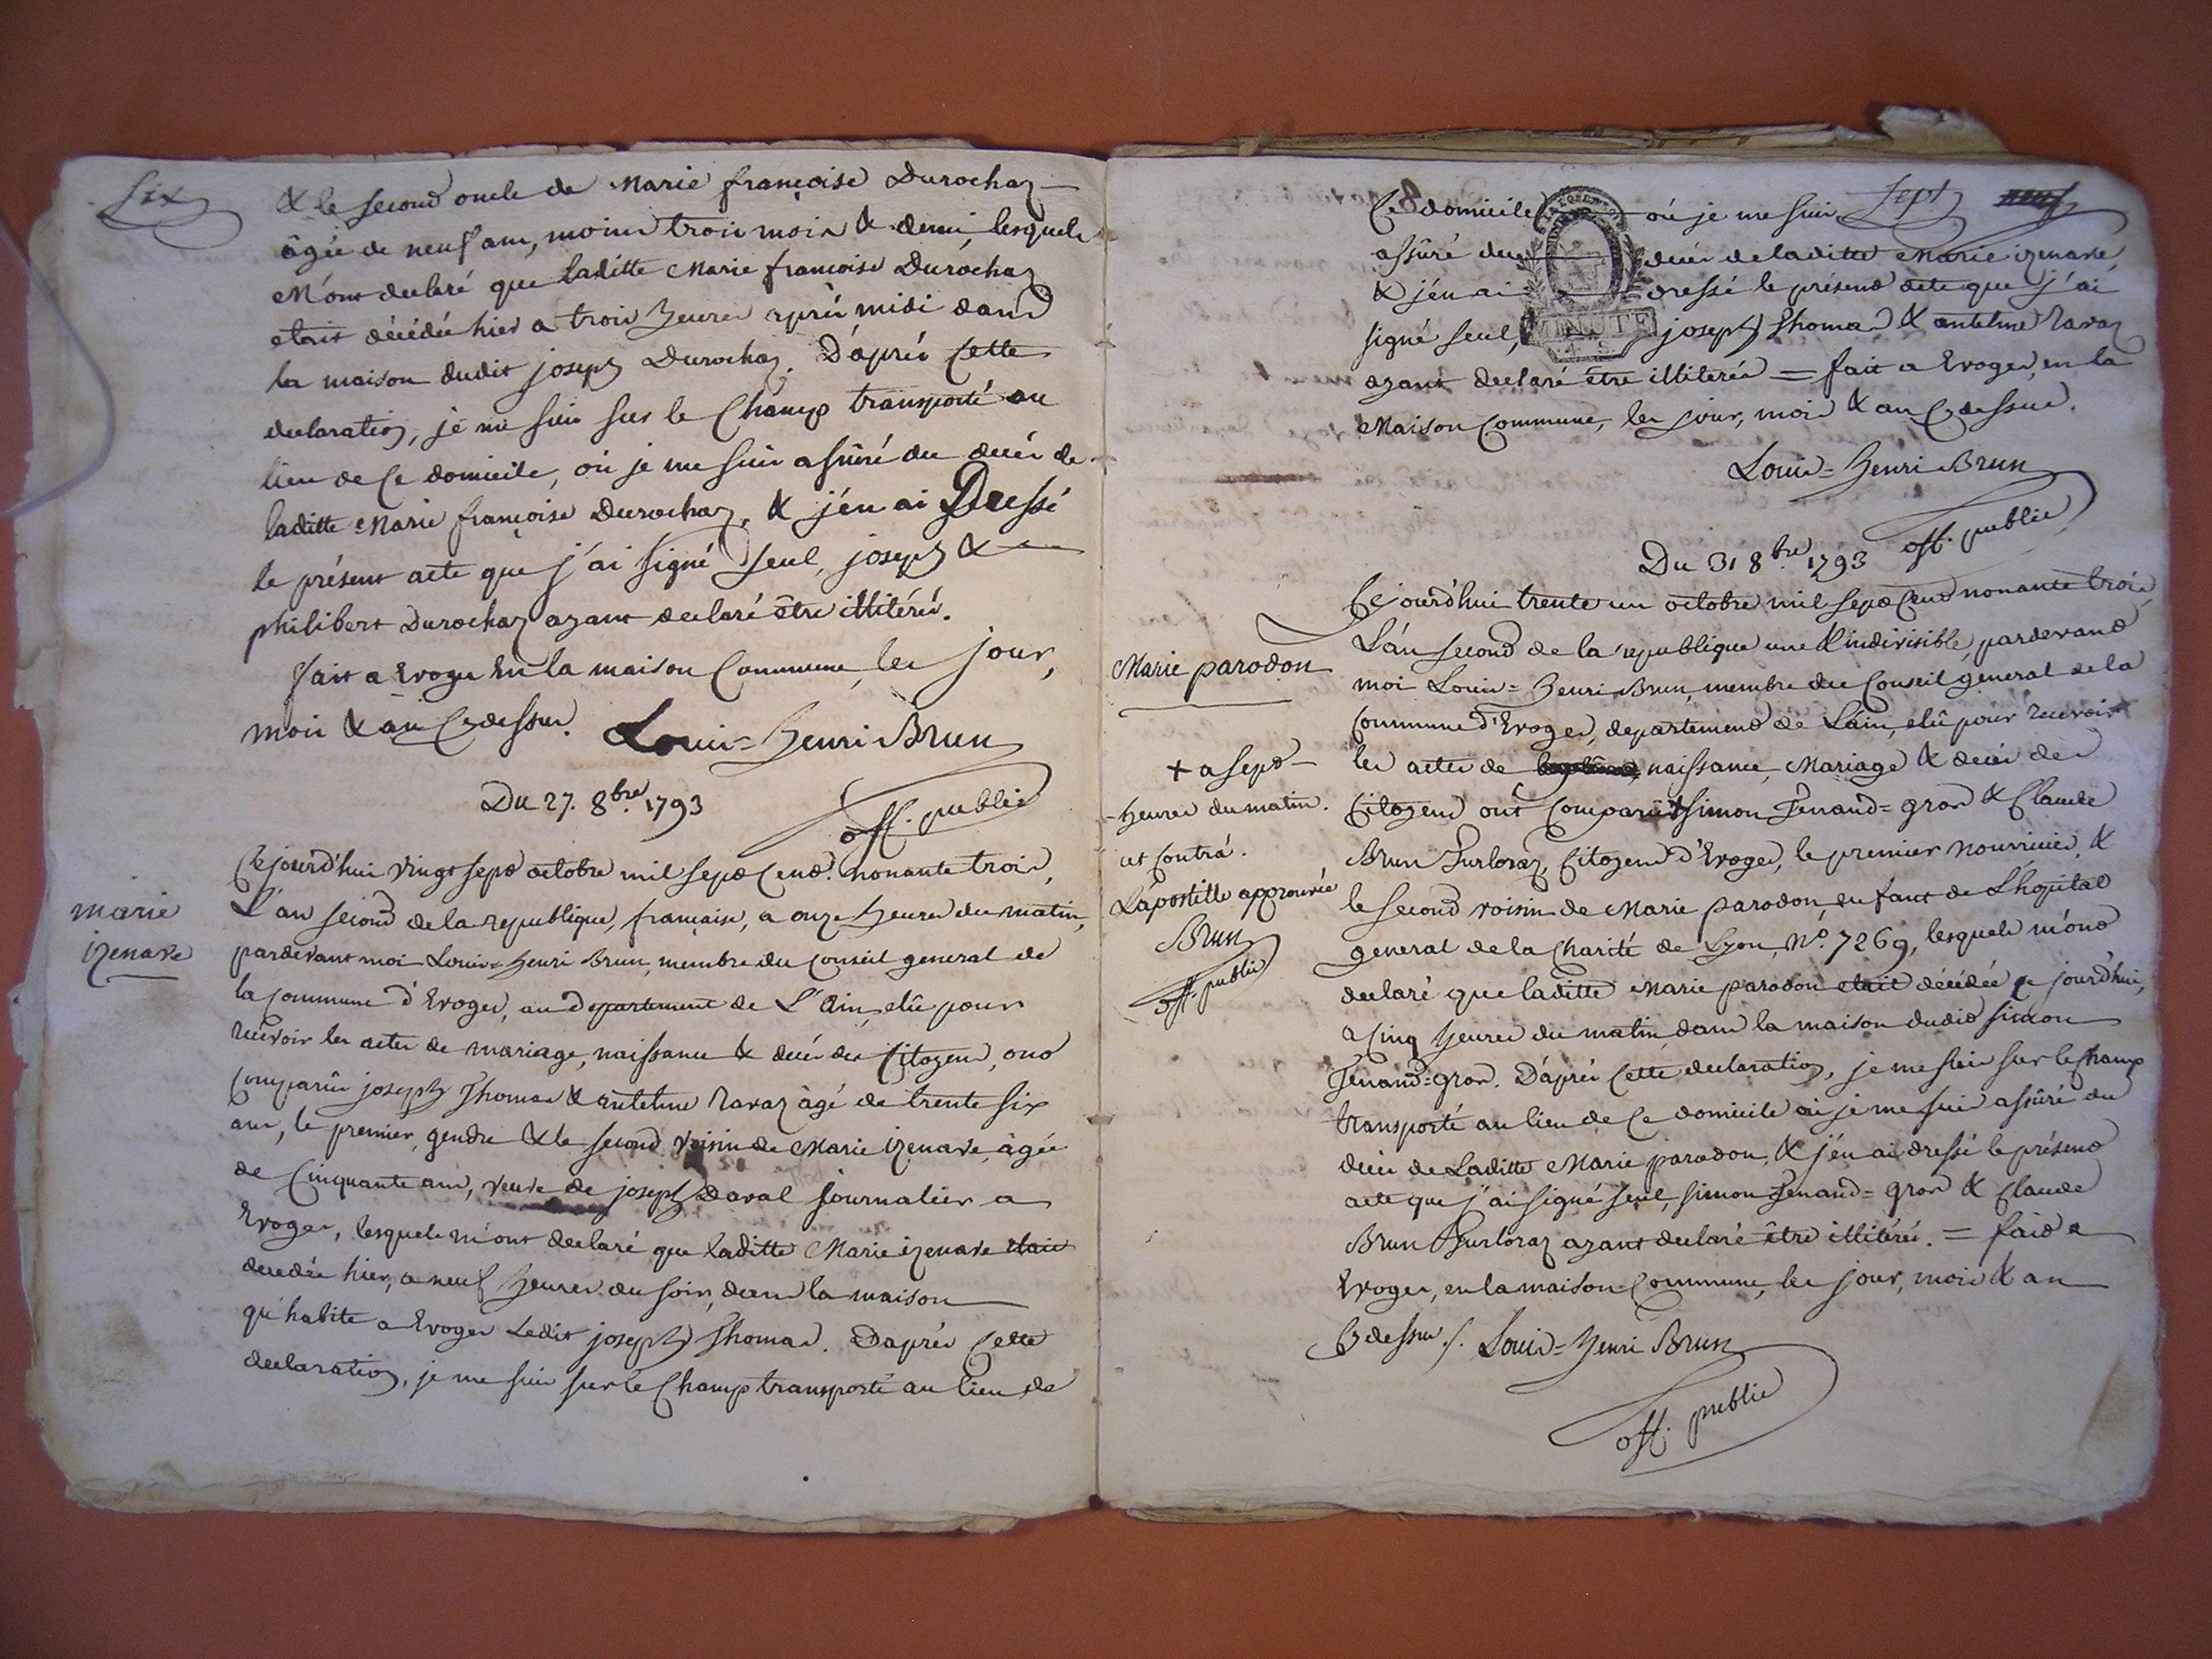 Six
& le second oncle de Marie françoise Durochaz
âgée de neuf ans, moins trois mois & demi, lesquels
m'ont declaré que laditte Marie françoise Durochaz
etait décédée hier a trois heures après midi dans
la maison dudit joseph Durochaz. D'après cette
declaration, je me suis sur le champ transporté au
lieu de ce domicile, où je me suis assûré du decès de
laditte Marie françoise Durochaz, & j'en ai Dressé
le présent acte que j'ai signé seul, joseph &
philibert Durochaz ayant declaré être illitérés.
fait a Evoges en la maison Commune, les jour,
mois & an Cy dessus. Louis=henri Brun
off. public
Du 27. 8bre. 1793
marie
izenave
Cejourd'hui vingt sept octobre mil sept cent nonante trois,
L'an second de la republique, française, a onze heures du matin,
pardevant moi Louis=henri Brun, membre du Conseil general de
la commune d'Evoges, au departement de L'Ain, elû pour
recevoir les actes de mariage, naissance & decès des Citoyens, ont
comparûs joseph Thomas & antelme ravaz âgé de trente six
ans, le premier, gendre & le second voisin de Marie izenave, âgée
de Cinquante ans, veuve de joseph daval journalier a
Evoges, lesquels m'ont declaré que laditte Marie izenave etait
decedée hier, a neuf heures du soir, dans la maison
qu'habite a Evoges Ledit joseph Thomas. D'après cette
declaration, je me suis sur le Champ transporté au lieu de
Sept neuf
Ce domicile où je me suis
assûré du decès de laditte Marie izenave,
& j'en ai dressé le présent acte que j'ai
signé seul, joseph Thomas & antelme ravaz
MINUTE
ayant declaré être illiterés = fait a Evoges, en la
Maison Commune, les jour, mois & an Cy dessus.
Louis=henri Brun
off. public
Du 31 8bre. 1793
Marie parodon
Cejourd'hui trente un octobre mil sept cent nonante trois,
L'an second de la republique une & indivisible, pardevant
moi Louis=henri Brun, membre du Conseil general de la
commune d'Evoges, departement de L'ain, elû pour recevoir
les actes de naissance, Mariage & decès des
Citoyens ont comparû + simon Jenand=gros & Claude
Brun Surloraz, Citoyens d'Evoges, le premier nourricier, &
le second voisin de Marie parodon, enfant de L'hopital
general de la Charité de Lyon, N°. 7269, lesquels m'ont
declaré que laditte Marie parodon etait décédée ce jourd'hui,
a Cinq heures du matin dans la maison dudit simon
Jenand=gros. D'après cette declaration, je me suis sur le Champ
transporté au lieu de Ce domicile où je me suis assûré du
decès de Laditte Marie parodon, & j'en ai dressé le présent
acte que j'ai signé seul, simon Jenand=gros & Claude
Brun Surloraz ayant declaré être illitérés. = fait a
Evoges, en la maison Commune, les jour, mois & an
Cy dessus ./. Louis=henri Brun
off. public
+ a sept
heures du matin.
L'apostille approuvée
Brun
off. public